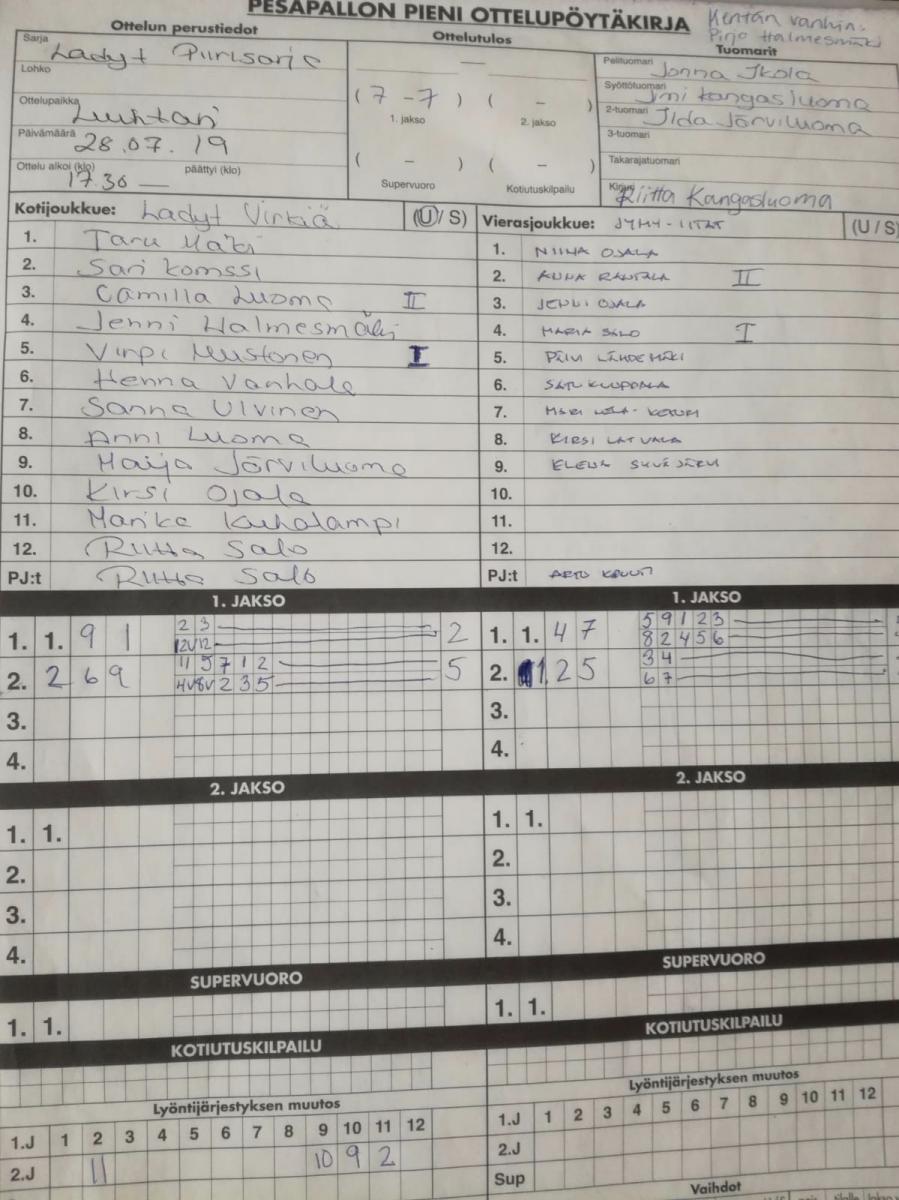 PESÄPALLON PIENI OTTELUPÖYTÄKIRJA
Kentän vanhin:
Pirjo Halmesmäki
Ottelun perustiedot
Sarja
Ladyt Piirisarja
Lohko
Ottelupaikka
Luhtari
Päivämäärä
28.07.19
Ottelu alkoi (klo) päättyi (klo)
17.30 —
Ottelutulos
—
( 7 - 7 ) ( - )
1. jakso 2. jakso
( - ) ( - )
Supervuoro Kotiutuskilpailu
Tuomarit
Pelituomari
Jonna Ikola
Syöttötuomari
Jmi Kangasluoma
2-tuomari
Iida Järviluoma
3-tuomari
Takarajatuomari
Kirjuri
Riitta Kangasluoma
Kotijoukkue: Ladyt Virkiä (U / S)
1. Taru Mäki
2. Sari Komssi
3. Camilla Luoma II
4. Jenni Halmesmäki
5. Virpi Mustonen I
6. Henna Vanhala
7. Sanna Ulvinen
8. Anni Luoma
9. Maija Järviluoma
10. Kirsi Ojala
11. Marika Kuhalampi
12. Riitta Salo
PJ:t Riitta Salo
Vierasjoukkue: JYMY-IITAT (U / S)
1. NIINA OJALA
2. ANNA RANTALA II
3. JENNI OJALA
4. MARIA SALO I
5. PÄIVI LÄHDEMÄKI
6. SATU KUOPPALA
7. MARI
8. KIRSI LATVALA
9. ELENA
10.
11.
12.
PJ:t ARTO
1. JAKSO
1. 1. 9 1 2 3 2
12V12
2. 2 6 9 11 5 7 1 2 5
4V8V 2 3 5
3.
4.
1. JAKSO
1. 1. 4 7 5 9 1 2 3
8 2 4 5 6
2. 1. 2 5 3 4
6 7
3.
4.
2. JAKSO
1. 1.
2.
3.
4.
2. JAKSO
1. 1.
2.
3.
4.
SUPERVUORO
1. 1.
SUPERVUORO
1. 1.
KOTIUTUSKILPAILU
KOTIUTUSKILPAILU
Lyöntijärjestyksen muutos
1.J 1 2 3 4 5 6 7 8 9 10 11 12
2.J 11 10 9 2
Lyöntijärjestyksen muutos
1.J 1 2 3 4 5 6 7 8 9 10 11 12
2.J
Sup
Vaihdot